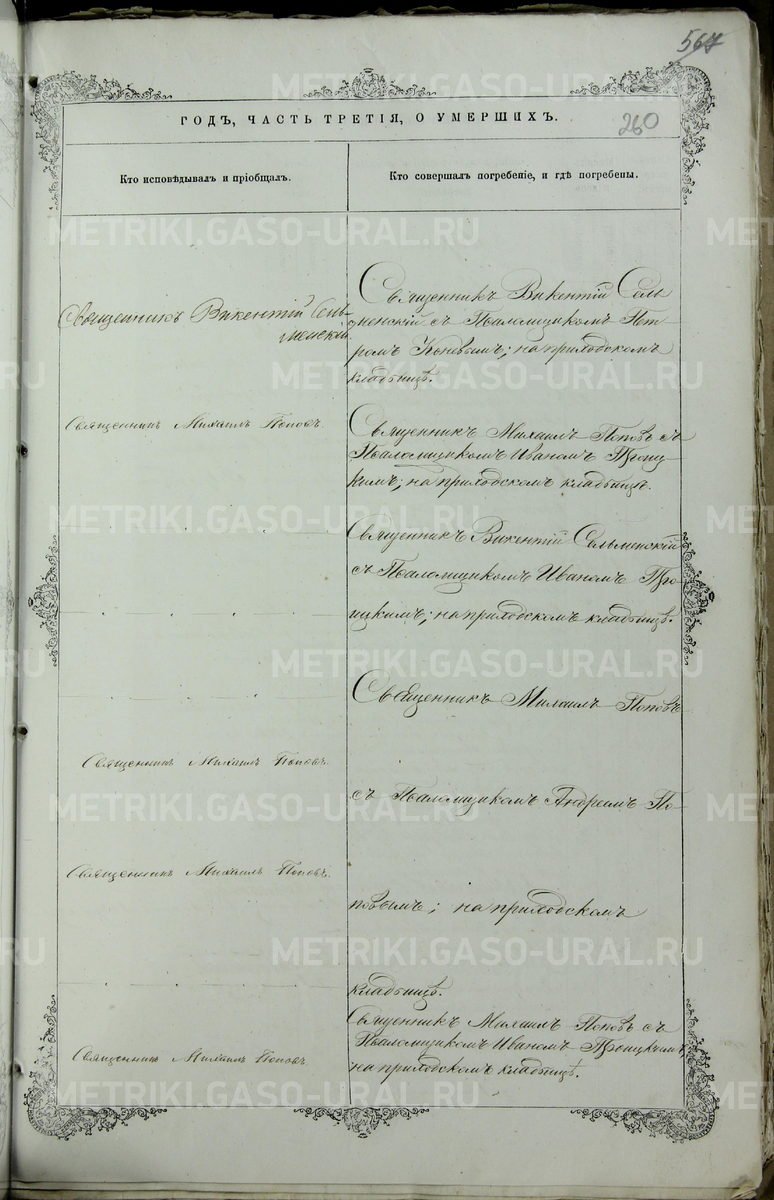 567
260
ГОДЪ, ЧАСТЬ ТРЕТІЯ, О УМЕРШИХЪ.
Кто исповѣдывалъ и пріобщалъ.
Кто совершалъ погребеніе, и гдѣ погребены.
Священникъ Викентій Сель-
менскій
Священникъ Викентій Сель-
менскій съ Псаломщикомъ Пет-
ромъ Коновымъ; на приходскомъ
кладбищѣ.
Священникъ Михаилъ Поповъ.
Священникъ Михаилъ Поповъ съ
Псаломщикомъ Иваномъ Троиц-
кимъ; на приходскомъ кладбищѣ.
Священникъ Викентій Сельменскій
съ Псаломщикомъ Иваномъ Тро-
ицкимъ; на приходскомъ кладбищѣ.
Священникъ Михаилъ Поповъ
Священникъ Михаилъ Поповъ.
съ Псаломщикомъ Андреемъ По-
Священникъ Михаилъ Поповъ.
повымъ; на приходскомъ
кладбищѣ.
Священникъ Михаилъ Поповъ съ
Псаломщикомъ Иваномъ Троицкимъ;
Священникъ Михаилъ Поповъ
на приходскомъ кладбищѣ.
METRIKI.GASO-URAL.RU